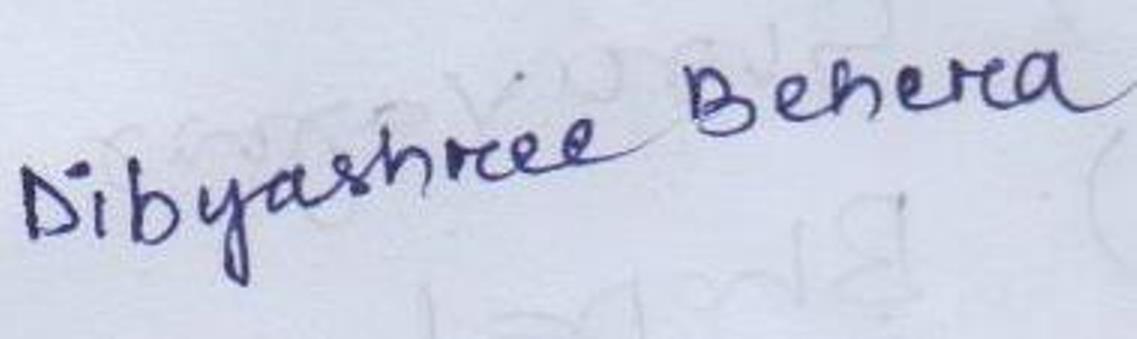 Dibyashree Behera